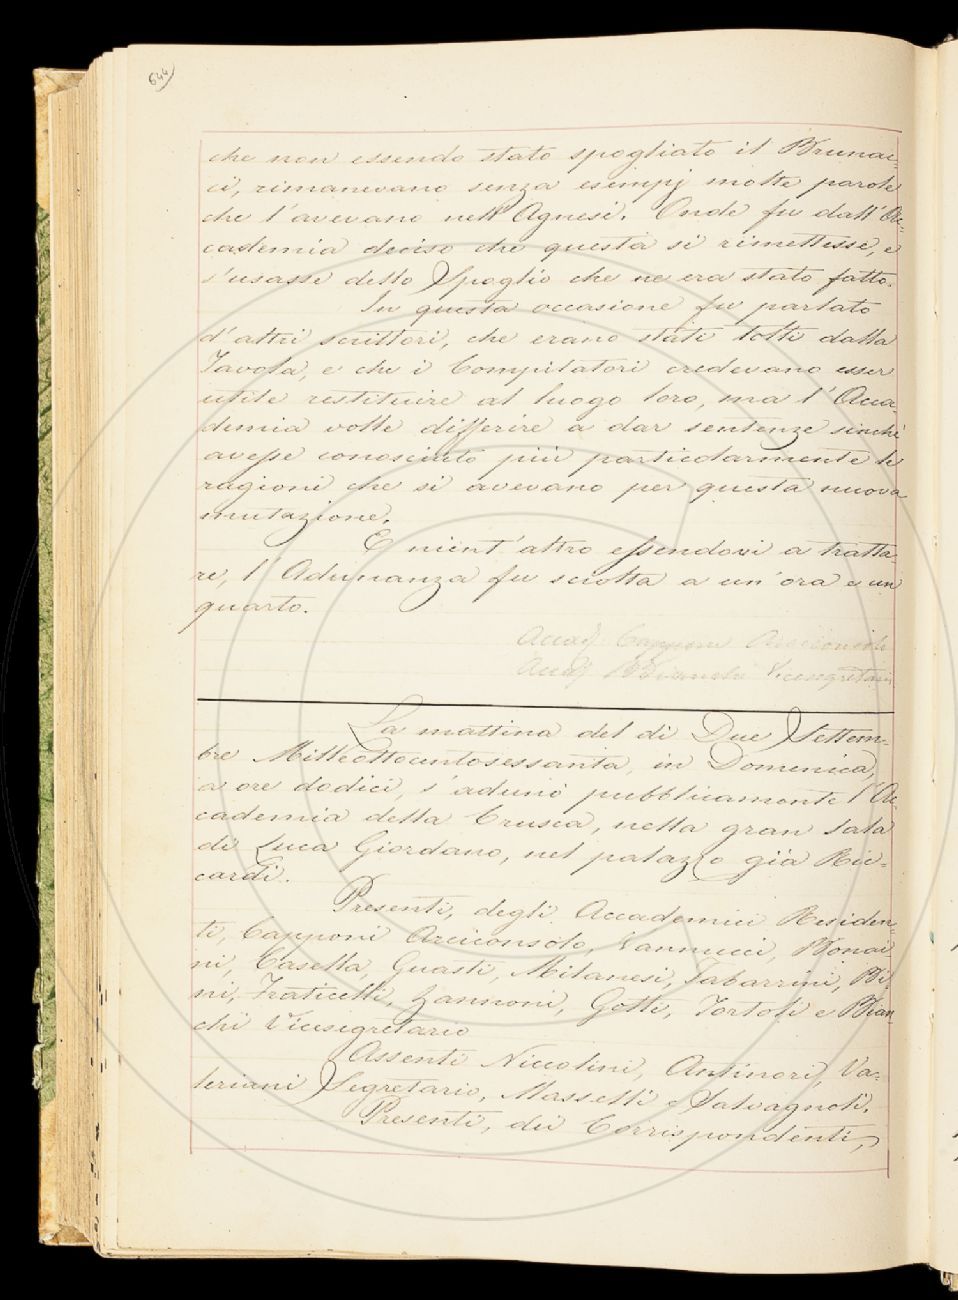 644
che non essendo stato spogliato il Brunac-
ci, rimanevano senza esempj molte parole
che l'avevano nell'Agnesi. Onde fu dall'Ac-
cademia deciso che questa si rimettesse, e
s'usasse dello Spoglio che ne era stato fatto.
In questa occasione fu parlato
d'altri scrittori, che erano stati tolti dalla
Tavola, e che i Compilatori credevano esser
utile restituire al luogo loro, ma l'Acca-
demia volle differire a dar sentenze sinchè
avesse conosciuto più particolarmente le
ragioni che si avevano per questa nuova
mutazione.
E nient'altro essendovi a tratta-
re, l'Adunanza fu sciolta a un'ora e un
quarto.
Capponi Arciconsolo
Bianchi Vicesegretario
La mattina del dì Due Settem-
bre Milleottocentosessanta, in Domenica,
a ore dodici, s'adunò pubblicamente l'Ac-
cademia della Crusca, nella gran Sala
di Luca Giordano, nel palazzo già Ric-
cardi.
Presenti, degli Accademici Residen-
ti, Capponi Arciconsolo, Vannucci, Bonai-
ni, Casella, Guasti, Milanesi, Tabarrini, Bi-
ni, Fraticelli, Zannoni, Gotti, Tortoli e Bian-
chi Vicesegretario
Assenti Niccolini, Antinori, Va-
leriani Segretario, Masselli e Salvagnoli.
Presenti, dei Corrispondenti,